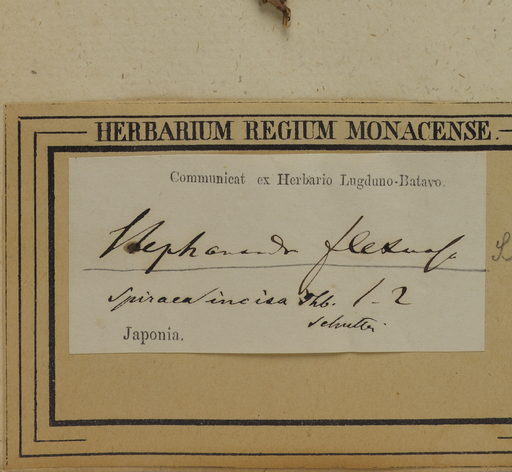 HERBARIUM REGIUM MONACENSE.
Communicat ex Herbario Lugduno-Batavo.
Stephanandra flexuosa
Spiraea incisa Thb. 1-2
Japonia.